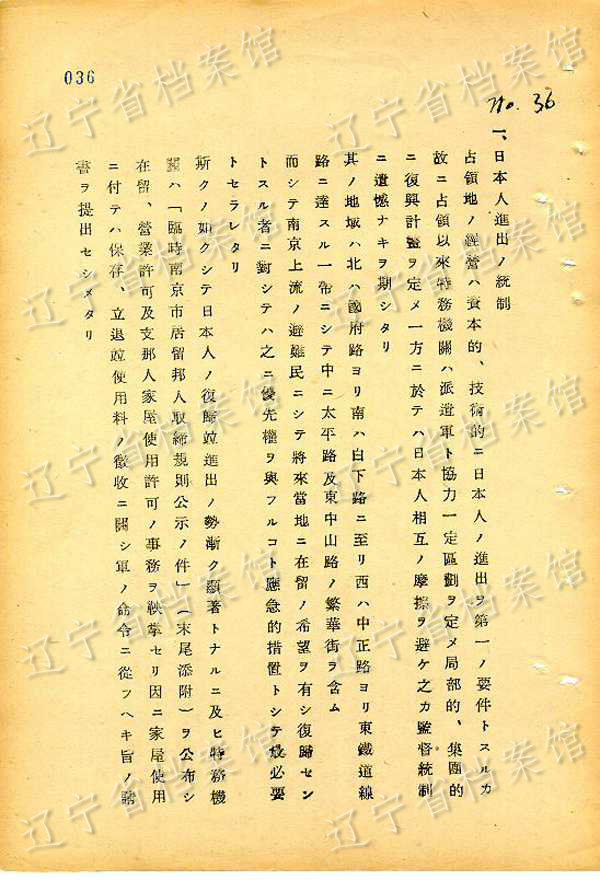 036
No. 36
一、日本人進出ノ統制
占領地ノ經營ハ資本的、技術的ニ日本人ノ進出ヲ第一ノ要件トスルカ
故ニ占領以來特務機關ハ派遣軍ト協力一定區劃ヲ定メ局部的、集團的
ニ復興計畫ヲ定メ一方ニ於テハ日本人相互ノ摩擦ヲ避ケ之カ監督統制
ニ遺憾ナキヲ期シタリ
其ノ地域ハ北ハ國府路ヨリ南ハ白下路ニ至リ西ハ中正路ヨリ東鐵道線
路ニ達スル一帶ニシテ中ニ太平路及東中山路ノ繁華街ヲ含ム
而シテ南京上流ノ避難民ニシテ將來當地ニ在留ノ希望ヲ有シ復歸セン
トスル者ニ對シテハ之ニ優先權ヲ與フルコト應急的措置トシテ最必要
トセラレタリ
斯クノ如クシテ日本人ノ復歸竝進出ノ勢漸ク顯著トナルニ及ヒ特務機
關ハ「臨時南京市居留邦人取締規則公示ノ件」（末尾添附）ヲ公布シ
在留、營業許可及支那人家屋使用許可ノ事務ヲ鞅掌セリ因ニ家屋使用
ニ付テハ保存、立退竝使用料ノ徵收ニ關シ軍ノ命令ニ從フヘキ旨ノ請
書ヲ提出セシメタリ
辽宁省档案馆
辽宁省档案馆
辽宁省档案馆
辽宁省档案馆
辽宁省档案馆
辽宁省档案馆
辽宁省档案馆
辽宁省档案馆
辽宁省档案馆
辽宁省档案馆